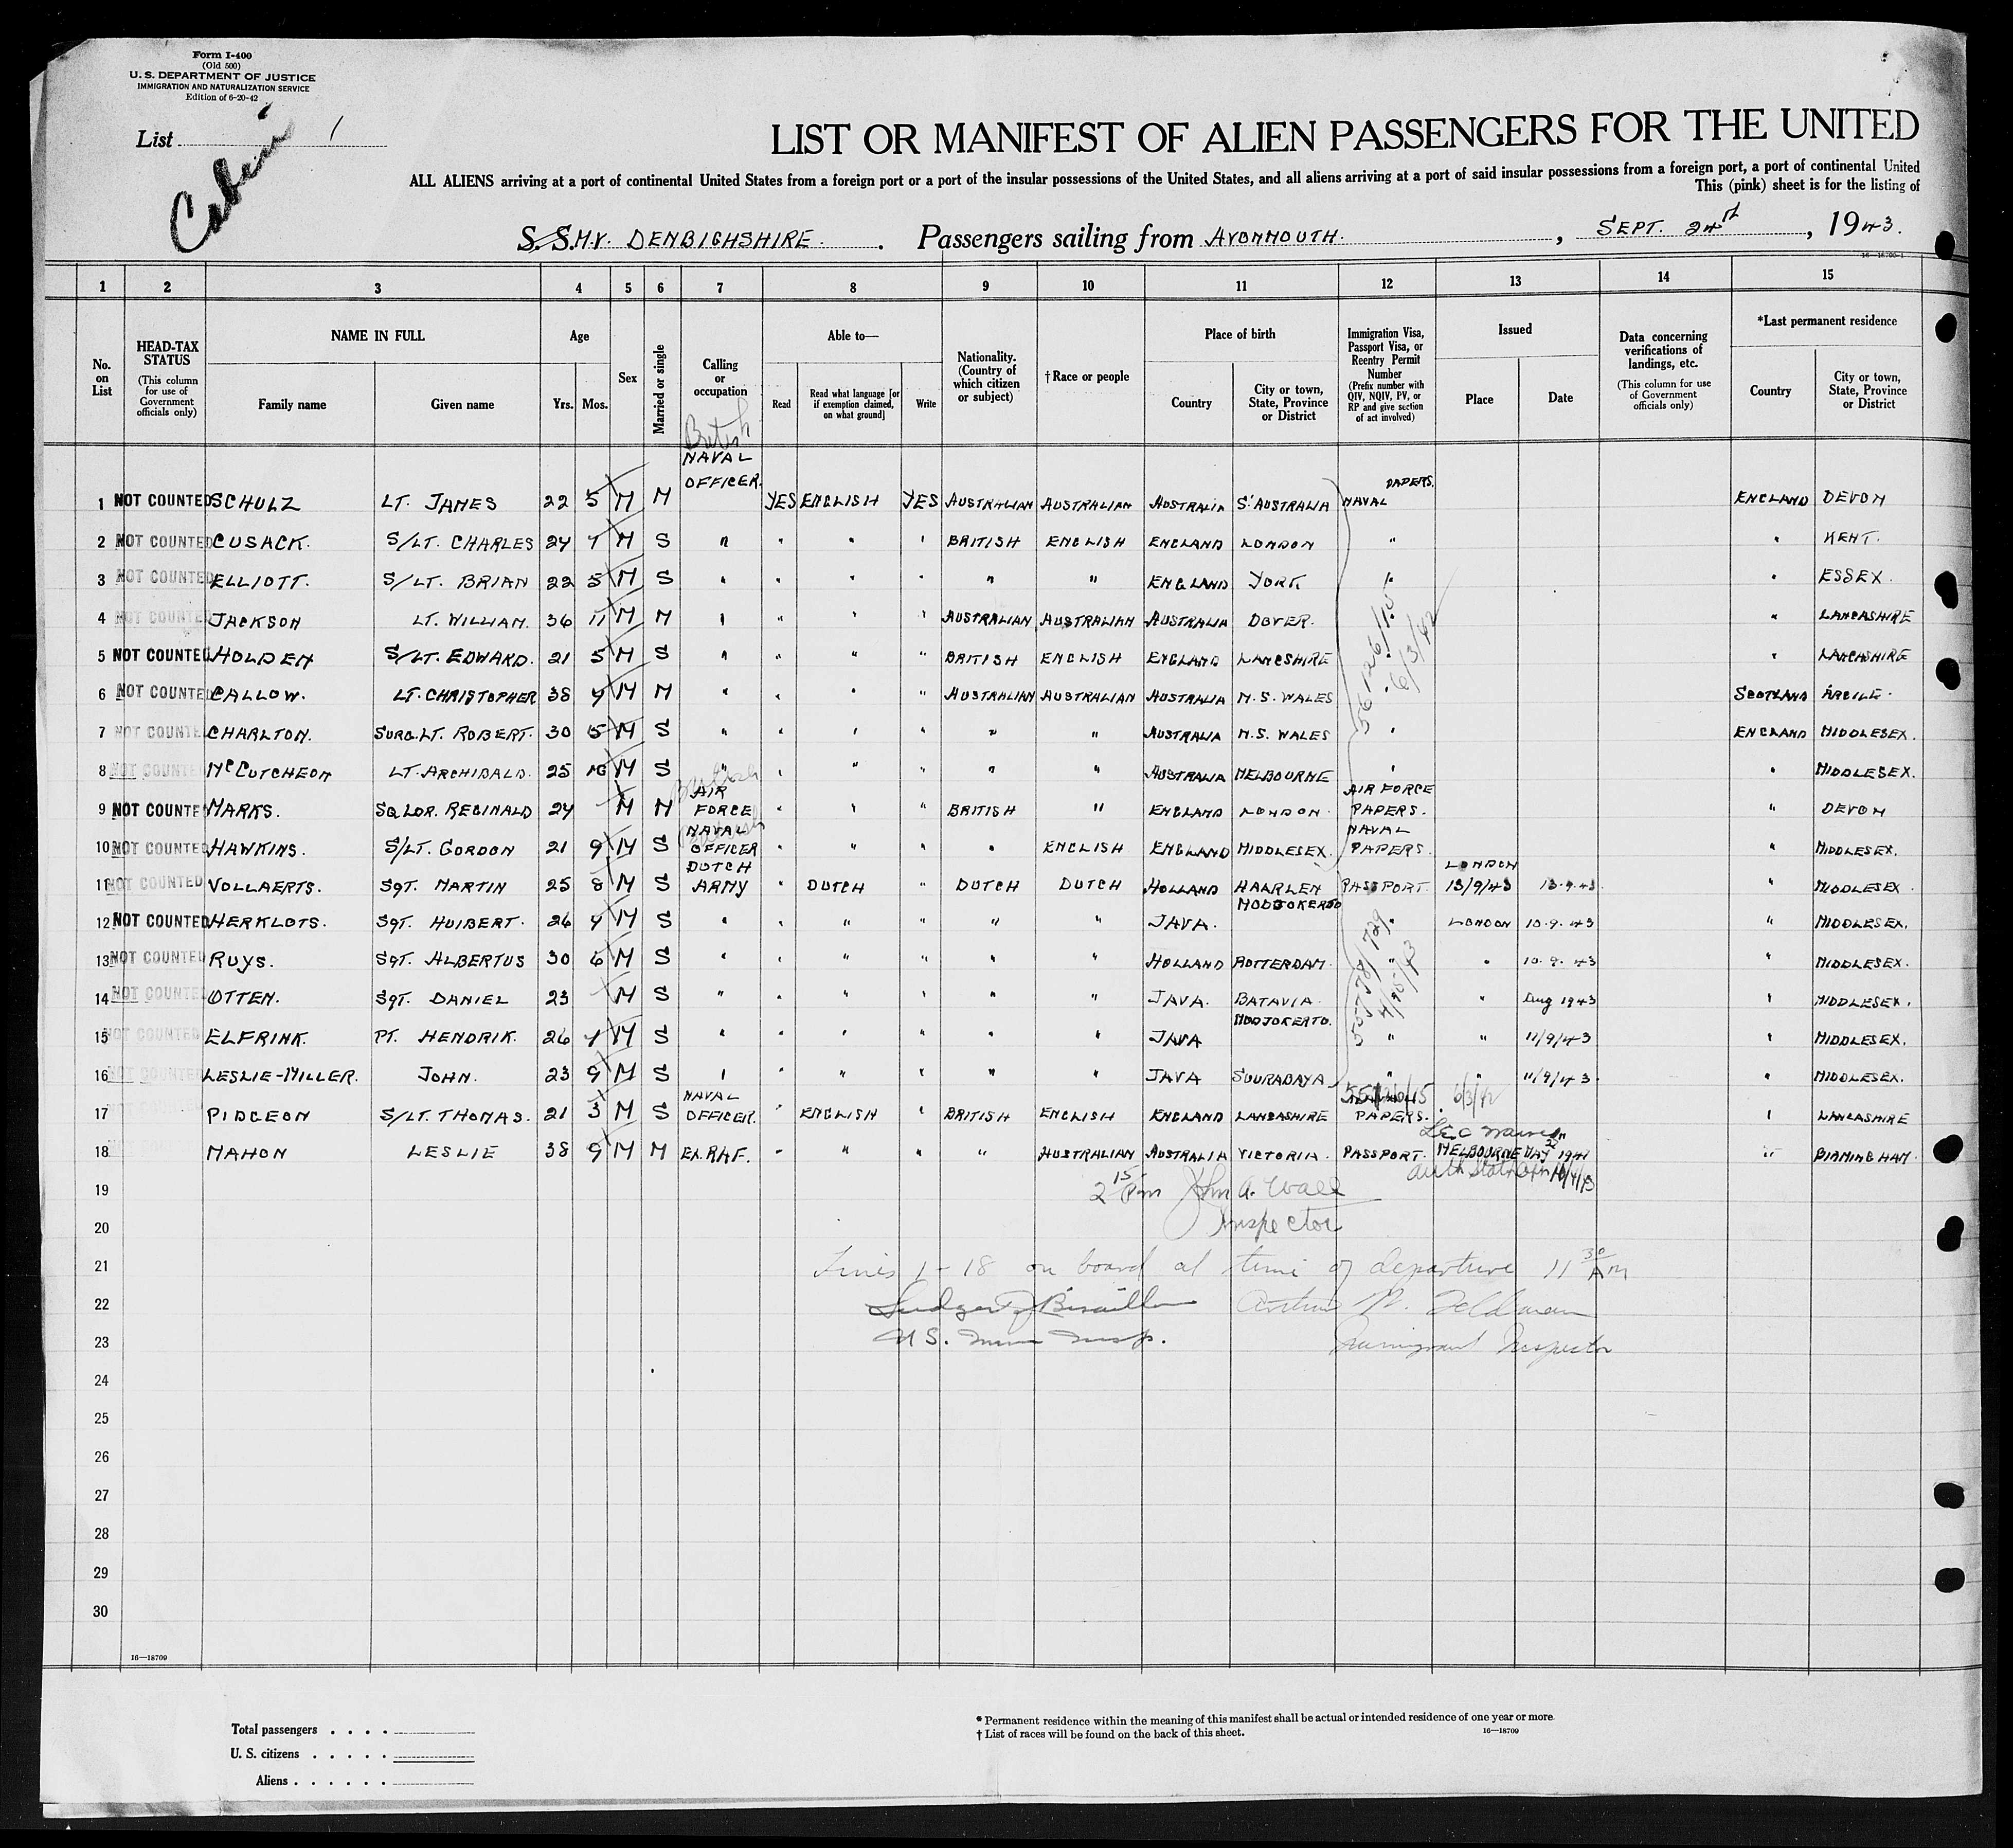 Form I-400
(Old 500)
U. S. DEPARTMENT OF JUSTICE
IMMIGRATION AND NATURALIZATION SERVICE
Edition of 6-20-42
List 1
Cabin
LIST OR MANIFEST OF ALIEN PASSENGERS FOR THE UNITED
ALL ALIENS arriving at a port of continental United States from a foreign port or a port of the insular possessions of the United States, and all aliens arriving at a port of said insular possessions from a foreign port, a port of continental United
This (pink) sheet is for the listing of
S. S. M.V. DENBIGHSHIRE. Passengers sailing from AVONMOUTH. , SEPT. 24th , 1943.
16—18709-1
1 2 3 4 5 6 7 8 9 10 11 12 13 14 15
No. on List
HEAD-TAX STATUS (This column for use of Government officials only)
NAME IN FULL Family name Given name
Age Yrs. Mos.
Sex
Married or single
Calling or occupation
Able to— Read Read what language [or if exemption claimed, on what ground] Write
Nationality. (Country of which citizen or subject)
† Race or people
Place of birth Country City or town, State, Province or District
Immigration Visa, Passport Visa, or Reentry Permit Number (Prefix number with QIV, NQIV, PV, or RP and give section of act involved)
Issued Place Date
Data concerning verifications of landings, etc. (This column for use of Government officials only)
*Last permanent residence Country City or town, State, Province or District
British
1 NOT COUNTED SCHULZ LT. JAMES 22 5 M M NAVAL OFFICER. YES ENGLISH YES AUSTRALIAN AUSTRALIAN AUSTRALIA S. AUSTRALIA NAVAL PAPERS. ENGLAND DEVON
2 NOT COUNTED CUSACK. S/LT. CHARLES 24 7 M S " " " " BRITISH ENGLISH ENGLAND LONDON " " KENT.
3 NOT COUNTED ELLIOTT. S/LT. BRIAN 22 5 M S " " " " " " ENGLAND YORK " " ESSEX.
4 NOT COUNTED JACKSON LT. WILLIAM. 36 11 M M " " " " AUSTRALIAN AUSTRALIAN AUSTRALIA DOVER. " LANCASHIRE
5 NOT COUNTED HOLDEN S/LT. EDWARD. 21 5 M S " " " " BRITISH ENGLISH ENGLAND LANCSHIRE " " LANCASHIRE
6 NOT COUNTED CALLOW. LT. CHRISTOPHER 38 9 M M " " " " AUSTRALIAN AUSTRALIAN AUSTRALIA N.S. WALES " SCOTLAND ARGILE.
7 NOT COUNTED CHARLTON. SURG.LT. ROBERT. 30 5 M S " " " " " " AUSTRALIA N.S. WALES " ENGLAND MIDDLESEX.
8 NOT COUNTED McCUTCHEON LT. ARCHIBALD. 25 10 M S " " " " " " AUSTRALIA MELBOURNE " " MIDDLESEX.
British
9 NOT COUNTED MARKS. SQ LDR. REGINALD 24 M M AIR FORCE " " " BRITISH " ENGLAND LONDON AIR FORCE PAPERS. " DEVON
British
10 NOT COUNTED HAWKINS. S/LT. GORDON 21 9 M S NAVAL OFFICER " " " " ENGLISH ENGLAND MIDDLESEX. NAVAL PAPERS. " MIDDLESEX.
11 NOT COUNTED VOLLAERTS. SGT. MARTIN 25 8 M S DUTCH ARMY " DUTCH " DUTCH DUTCH HOLLAND HAARLEN PASSPORT. LONDON 13/9/43 13.9.43 " MIDDLESEX.
12 NOT COUNTED HERKLOTS. SGT. HUIBERT. 26 4 M S " " " " " " JAVA. MODJOKERTO " LONDON 10.9.43 " MIDDLESEX.
13 NOT COUNTED RUYS. SGT. ALBERTUS 30 6 M S " " " " " " HOLLAND ROTTERDAM. " " 10.9.43 " MIDDLESEX.
14 NOT COUNTED OTTEN. SGT. DANIEL 23 M S " " " " " " JAVA. BATAVIA. " Aug 1943 " MIDDLESEX.
15 NOT COUNTED ELFRINK. PT. HENDRIK. 26 M S " " " " " " JAVA MODJOKERTO. " " 11/9/43 " MIDDLESEX.
16 NOT COUNTED LESLIE-MILLER. JOHN. 23 9 M S " " " " " " JAVA SOURABAYA " " 11/9/43. " MIDDLESEX.
17 PIDGEON S/LT. THOMAS. 21 3 M S NAVAL OFFICER. " ENGLISH " BRITISH ENGLISH ENGLAND LANCASHIRE PAPERS. 6/3/42 " LANCASHIRE
18 MAHON LESLIE 38 9 M M EX. RAF. " " " " AUSTRALIAN AUSTRALIA VICTORIA. PASSPORT. MELBOURNE MAY 1941 " BIRMINGHAM.
56126/15
6/13/42
19 2 15 Pm John A. Wall
20 Inspector
21 Lines 1-18 on board at time of departure 11 30 AM
22 Arthur N. Feldman
23 U.S. Imm Insp. Immigrant Inspector
24
25
26
27
28
29
30
16—18709
Total passengers . . . .
U. S. citizens . . . . .
Aliens . . . . . .
* Permanent residence within the meaning of this manifest shall be actual or intended residence of one year or more.
† List of races will be found on the back of this sheet. 16—18709